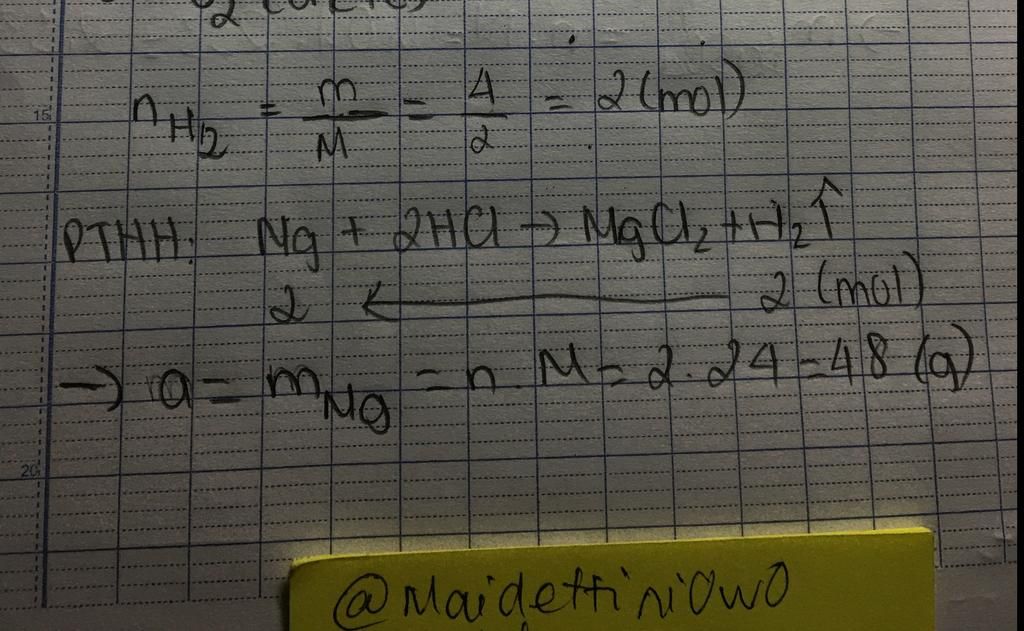 15
n_{H_2} = \frac{m}{M} = \frac{4}{2} = 2 (mol)
PTHH: Mg + 2HCl → MgCl₂ + H₂↑
2 ← 2 (mol)
→ a = m_{Mg} = n . M = 2 . 24 = 48 (g)
20
@MaidettiniOwO